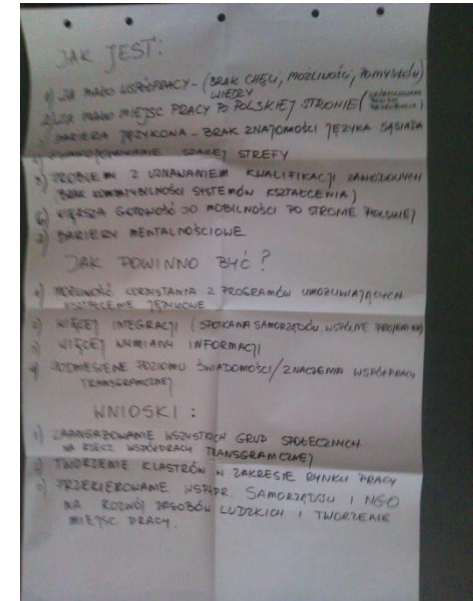 JAK JEST:
1) ZA MAŁO WSPÓŁPRACY - (BRAK CHĘCI, MOŻLIWOŚCI, POMYSŁÓW)
WIEDZY
2) ZA MAŁO MIEJSC PRACY PO POLSKIEJ STRONIE (
BARIERA JĘZYKOWA - BRAK ZNAJOMOŚCI JĘZYKA SĄSIADA
FUNKCJONOWANIE SZAREJ STREFY
5) PROBLEMY Z UZNAWANIEM KWALIFIKACJI ZAWODOWYCH
BRAK KOMPATYBILNOŚCI SYSTEMÓW KSZTAŁCENIA)
6) WIĘKSZA GOTOWOŚĆ DO MOBILNOŚCI PO STRONIE POLSKIEJ
7) BARIERY MENTALNOŚCIOWE
JAK POWINNO BYĆ?
1) MOŻLIWOŚĆ KORZYSTANIA Z PROGRAMÓW UMOŻLIWIAJĄCYCH
KSZTAŁCENIE JĘZYKOWE
2) WIĘCEJ INTEGRACJI (SPOTKANIA SAMORZĄDÓW, WSPÓLNE PROJEKTY)
3) WIĘCEJ WYMIANY INFORMACJI
4) PODNIESIENIE POZIOMU ŚWIADOMOŚCI/ZNACZENIA WSPÓŁPRACY
TRANSGRANICZNEJ
WNIOSKI:
1) ZAANGAŻOWANIE WSZYSTKICH GRUP SPOŁECZNYCH
NA RZECZ WSPÓŁPRACY TRANSGRANICZNEJ
2) TWORZENIE KLASTRÓW W ZAKRESIE RYNKU PRACY
3) PRZEKIEROWANIE WSPÓŁPR. SAMORZĄDÓW I NGO
NA ROZWÓJ ZASOBÓW LUDZKICH I TWORZENIE
MIEJSC PRACY.